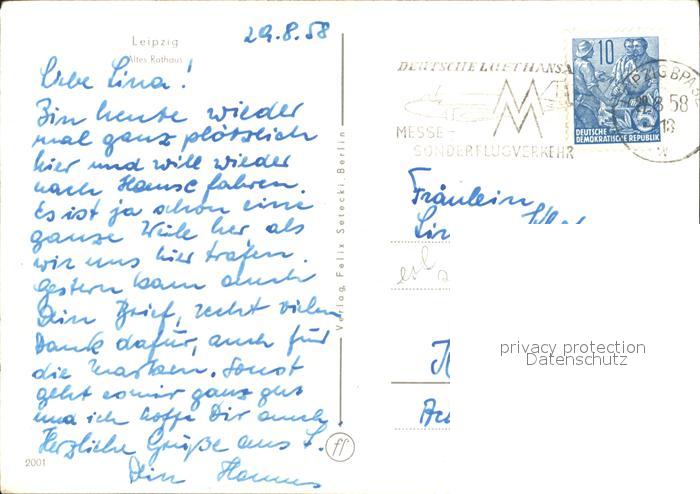 Leipzig
Altes Rathaus
29.8.58
Liebe Lina!
Bin heute wieder
mal ganz plötzlich
hier und will wieder
nach Hause fahren.
Es ist ja schon eine
ganze Weile her als
wir uns hier trafen.
Gestern kam auch
Dein Brief, recht vielen
Dank dafür, auch für
die Marken. Sonst
geht es mir ganz gut
und ich hoffe Dir auch.
Herzliche Grüße aus L.
Dein Hannes
2001
Verlag Felix Setecki, Berlin
ff
DEUTSCHE LUFTHANSA
MM
MESSE-
SONDERFLUGVERKEHR
10
DEUTSCHE
DEMOKRATISCHE REPUBLIK
LEIPZIG BPA
8.58
Fräulein
privacy protection
Datenschutz